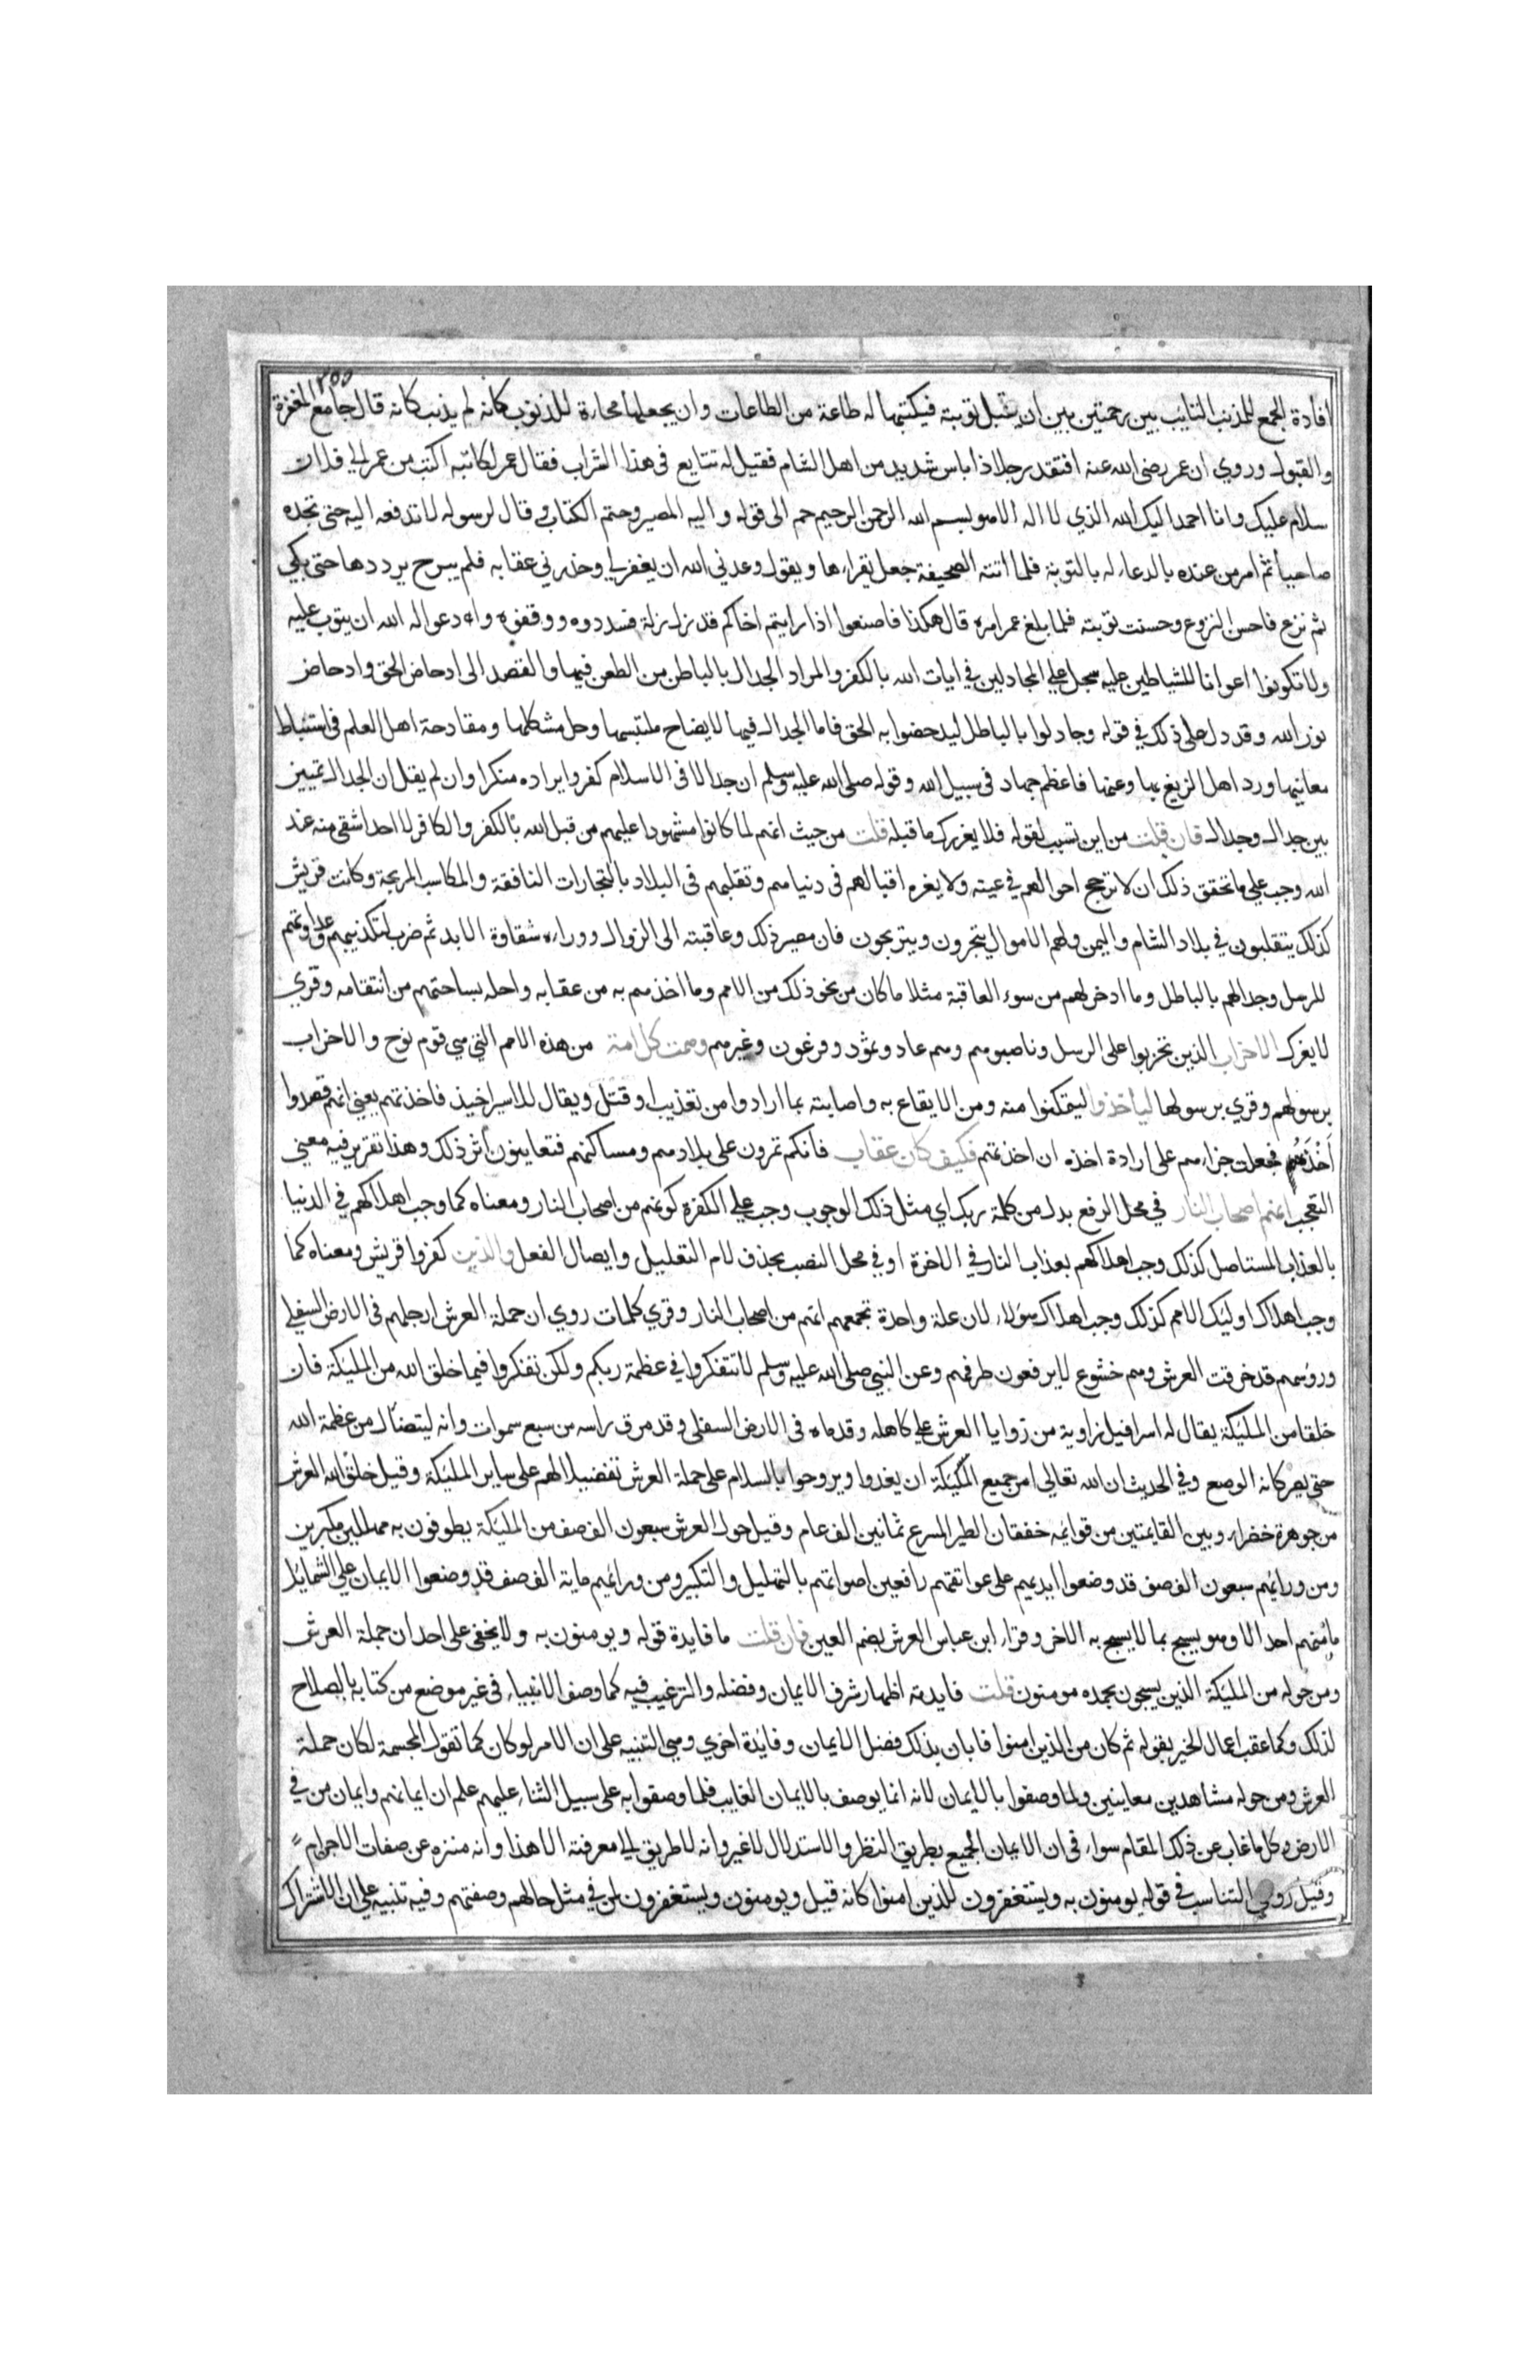 ٢٥٥
افادة الجمع للمذنب التايب بين رحمتين بين ان يقبل توبته فيكتبها له طاعة من الطاعات وان يجعلها محاءة للذنوب كانه لم يذنب كانه قال جامع المغفرة
والقبول وروي ان عمر رضى الله عنه افتقد رجلا ذا باس شديد من اهل الشام فقيل له تتايع فى هذا الشراب فقال عمر لكاتبه اكتب من عمر الي فلان
سلام عليك وانا احمد اليك الله الذي لا اله الا هو بسم الله الرحمن الرحيم حم الى قوله واليه المصير وختم الكتاب وقال لرسوله لا تدفعه اليه حتى تجده
صاحيا ثم امر من عنده بالدعاء له بالتوبة فلما اتته الصحيفة جعل يقراءها ويقول وعدني الله ان يغفر لي وحذرني عقابه فلم يبرح يرددها حتى بكي
ثم نزع فاحسن النزوع وحسنت توبته فلما بلغ عمر امره قال هكذا فاصنعوا اذا رايتم اخاكم قد زل زلة فسددوه ووقفوه وادعوا له الله ان يتوب عليه
ولا تكونوا اعوانا للشياطين عليه سجل علي المجادلين في ايات الله بالكفر والمراد الجدال بالباطل من الطعن فيها والقصد الى ادحاض الحق وادحاض
نور الله وقد دل على ذلك في قوله وجادلوا بالباطل ليدحضوا به الحق فاما الجدال فيها لايضاح ملتبسها وحل مشكلها ومقادحة اهل العلم فى استنباط
معانيها ورد اهل الزيغ بها وعنها فاعظم جهاد فى سبيل الله وقوله صلى الله عليه وسلم ان جدالا فى الاسلام كفر وايراده منكرا وان لم يقل ان الجدال تمييز
بين جدال وجدال فان قلت من اين تسبب لقوله فلا يغررك ما قبله قلت من حيث انهم لما كانوا مشهودا عليهم من قبل الله بالكفر والكافر لا احد اشقى منه عند
الله وجب علي ما تحقق ذلك ان لا ترجح احوالهم في عينه ولا يغره اقبالهم فى دنياهم وتقلبهم فى البلاد بالتجارات النافقة والمكاسب المربحة وكانت قريش
كذلك يتقلبون في بلاد الشام واليمن ولهم الاموال يتجرون ويتربحون فان مصير ذلك وعاقبته الى الزوال ووراءه شقاوة الابد ثم ضرب لتكذيبهم وعداوتهم
للرسل وجدالهم بالباطل وما ادخر لهم من سوء العاقبة مثلا ما كان من نحو ذلك من الامم وما اخذهم به من عقابه واحله بساحتهم من انتقامه وقري
لا يغرك الاحزاب الذين تحزبوا على الرسل وناصبوهم وهم عاد وثمود وفرعون وغيرهم وهمت كل امة من هذه الامم التي هي قوم نوح والاحزاب
برسولهم وقري برسولها لياخذوه ليتمكنوا منه ومن الايقاع به واصابته بما ارادوا من تعذيب او قتل ويقال للاسير اخيذ فاخذتهم يعني انهم قصدوا
اخذهم فجعلت جزاءهم على ارادة اخذه ان اخذتهم فكيف كان عقاب فانكم تمرون على بلادهم ومساكنهم فتعاينون اثر ذلك وهذا تقرير فيه معني
التعجب انهم اصحاب النار في محل الرفع بدل من كلمة ربك اي مثل ذلك الوجوب وجب علي الكفرة كونهم من اصحاب النار ومعناه كما وجب اهلاكهم في الدنيا
بالعذاب المستاصل كذلك وجب اهلاكهم بعذاب النار في الاخرة او في محل النصب بحذف لام التعليل وايصال الفعل والذين كفروا قريش ومعناه كما
وجب اهلاك اوليك الامم كذلك وجب اهلاك هؤلاء لان علة واحدة تجمعهم انهم من اصحاب النار وقري كلمات روي ان حملة العرش ارجلهم فى الارض السفلي
ورؤسهم قد خرقت العرش وهم خشوع لا يرفعون طرفهم وعن النبي صلى الله عليه وسلم لا تتفكروا في عظمة ربكم ولكن تفكروا فيما خلق الله من المليكة فان
خلقا من المليكة يقال له اسرافيل زاوية من زوايا العرش علي كاهله وقدماه فى الارض السفلى وقد مرق راسه من سبع سموات وانه ليتضال من عظمة الله
حتى يصير كانه الوصع وفي الحديث ان الله تعالي امر جميع المليكة ان يغدوا ويروحوا بالسلام على حملة العرش تفضيلا لهم على ساير المليكة وقيل خلق الله العرش
من جوهرة خضراء وبين القايمتين من قوائمه خفقان الطير المسرع ثمانين الف عام وقيل حول العرش سبعون الف صف من المليكة يطوفون به مهللين مكبرين
ومن ورائهم سبعون الف صف قد وضعوا ايديهم على عواتقهم رافعين اصواتهم بالتهليل والتكبير ومن ورائهم ماية الف صف قد وضعوا الايمان علي الشمايل
ما منهم احد الا وهو يسبح بما لا يسبح به الاخر وقراء ابن عباس العرش بضم العين فان قلت ما فايدة قوله ويومنون به ولا يخفى على احد ان حملة العرش
ومن حوله من المليكة الذين يسبحون بحمده مومنون قلت فايدته اظهار شرف الايمان وفضله والترغيب فيه كما وصف الانبياء فى غير موضع من كتابه بالصلاح
لذلك وكما عقب اعمال الخير بقوله ثم كان من الذين امنوا فابان بذلك فضل الايمان وفائدة اخري وهي التنبيه على ان الامر لو كان كما تقول المجسمة لكان حملة
العرش ومن حوله مشاهدين معاينين ولما وصفوا بالايمان لانه انما يوصف بالايمان الغايب فلما وصفوا به على سبيل الثناء عليهم علم ان ايمانهم وايمان من في
الارض وكل ما غاب عن ذلك المقام سواء فى ان الايمان الجميع بطريق النظر والاستدلال لا غير وانه لا طريق الي معرفته الا هذا وانه منزه عن صفات الاجرام
وقيل روعي التناسب في قوله يومنون به ويستغفرون للذين امنوا كانه قيل ويومنون ويستغفرون لمن في مثل حالهم وصفتهم وفيه تنبيه علي ان الاشتراك